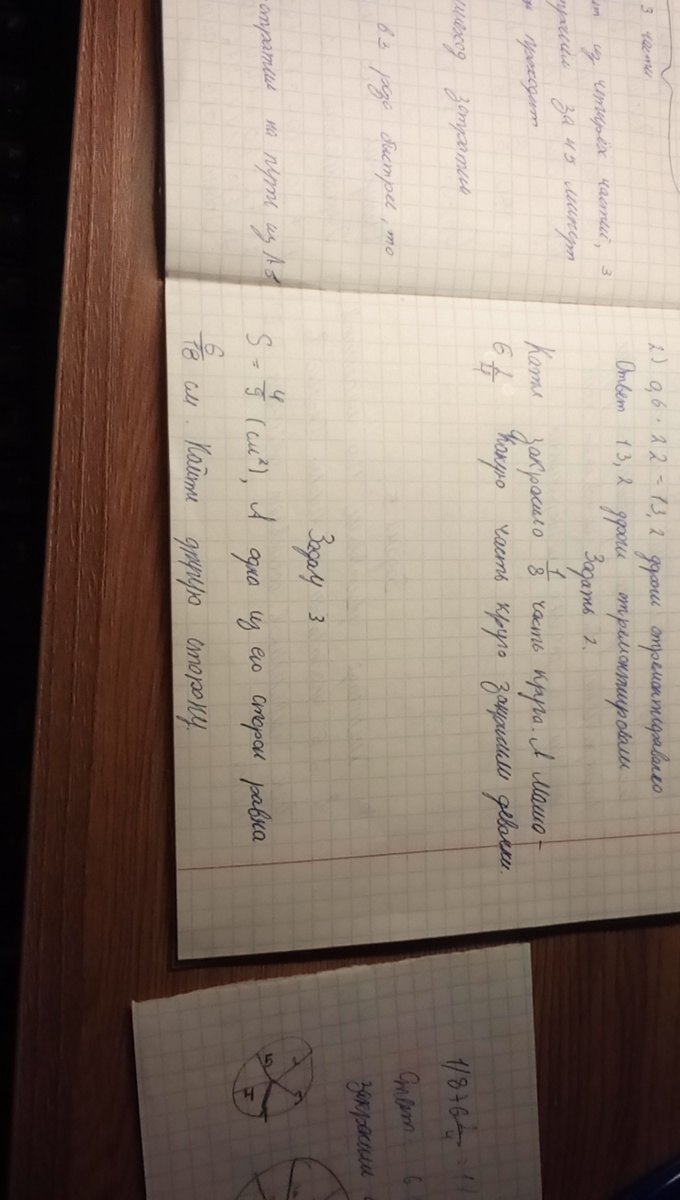 3 части
из четырёх частей, 3
за 45 минут
проходит
затратил
в 3 раза быстрее, то
на пути из А в
2) 0,6 · 22 = 13,2 дроги отремонтировали
Ответ 13,2 дроги отремонтировали
Задать 2.
Катя закрасило 1/8 часть круга. А Машо-
6 1/4 Какую часть круго закрасили девочки.
Задач 3
S = 4/9 (см²), А одна из его сторон равна
6/18 см. Найти другую сторону.
1/8+6 1/4 =
Ответ 6
закрасили